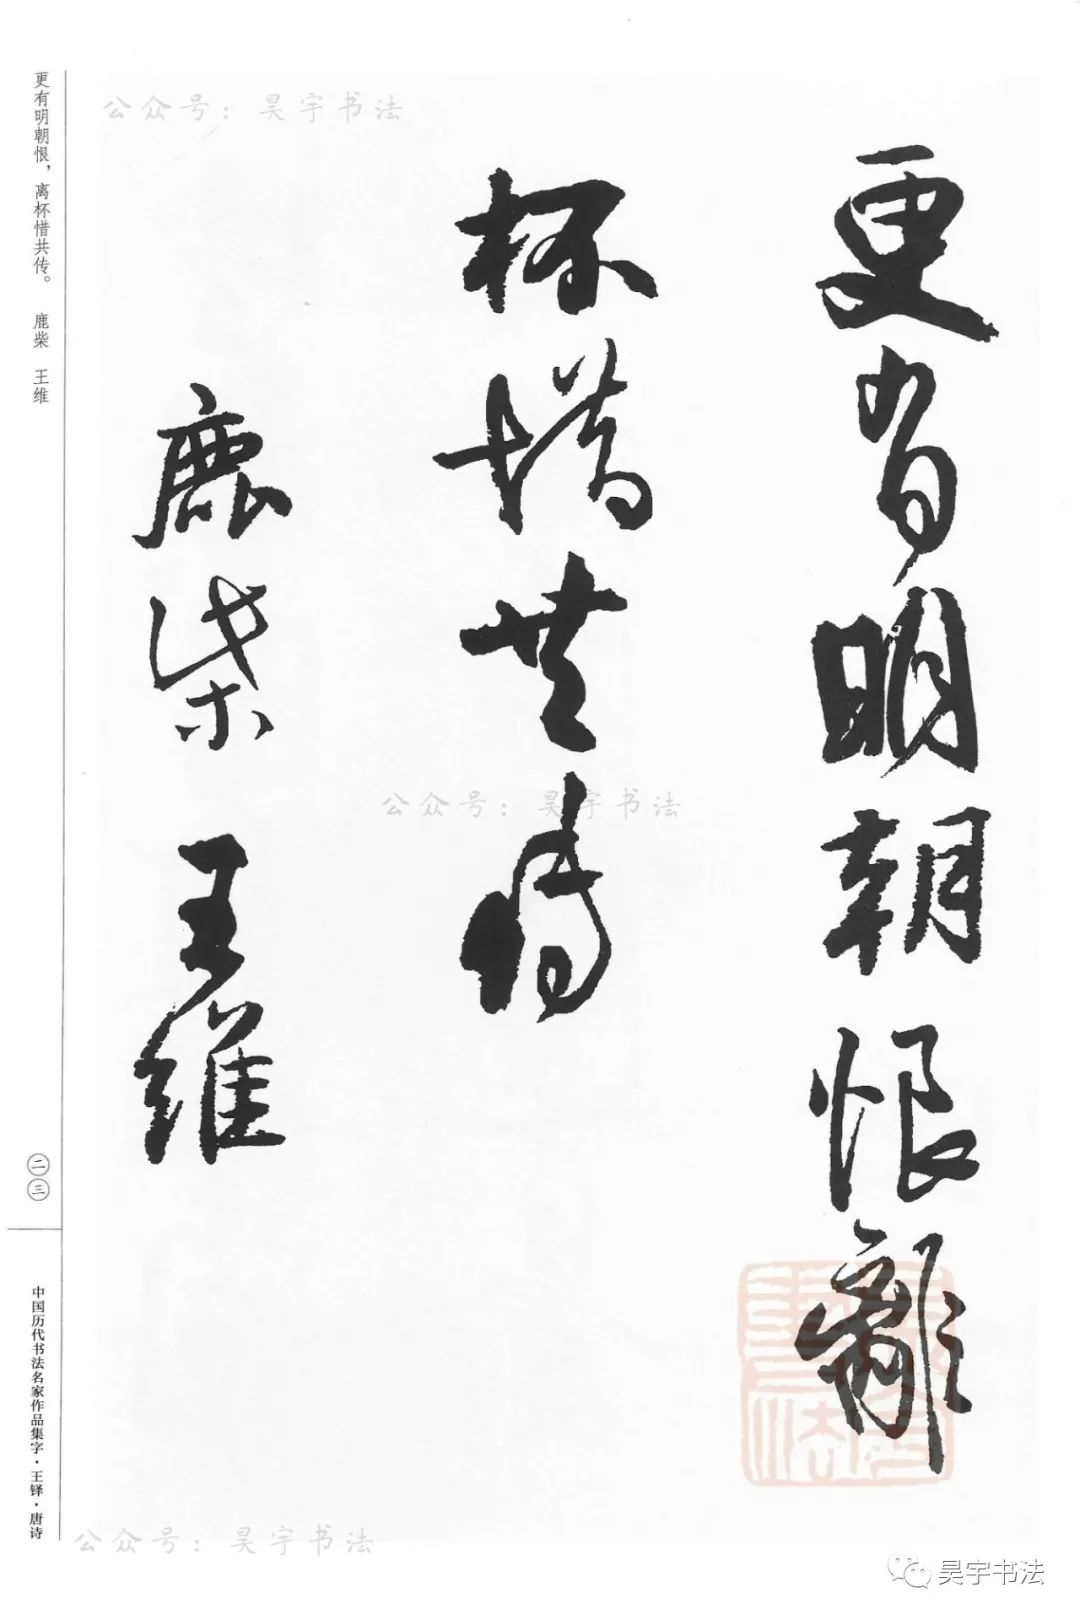 公众号：昊宇书法
更有明朝恨離
杯惜共傳
鹿柴 王維
公众号：昊宇书法
更有明朝恨，离杯惜共传。 鹿柴 王维
二三
中国历代书法名家作品集字·王铎·唐诗
公众号：昊宇书法
昊宇书法